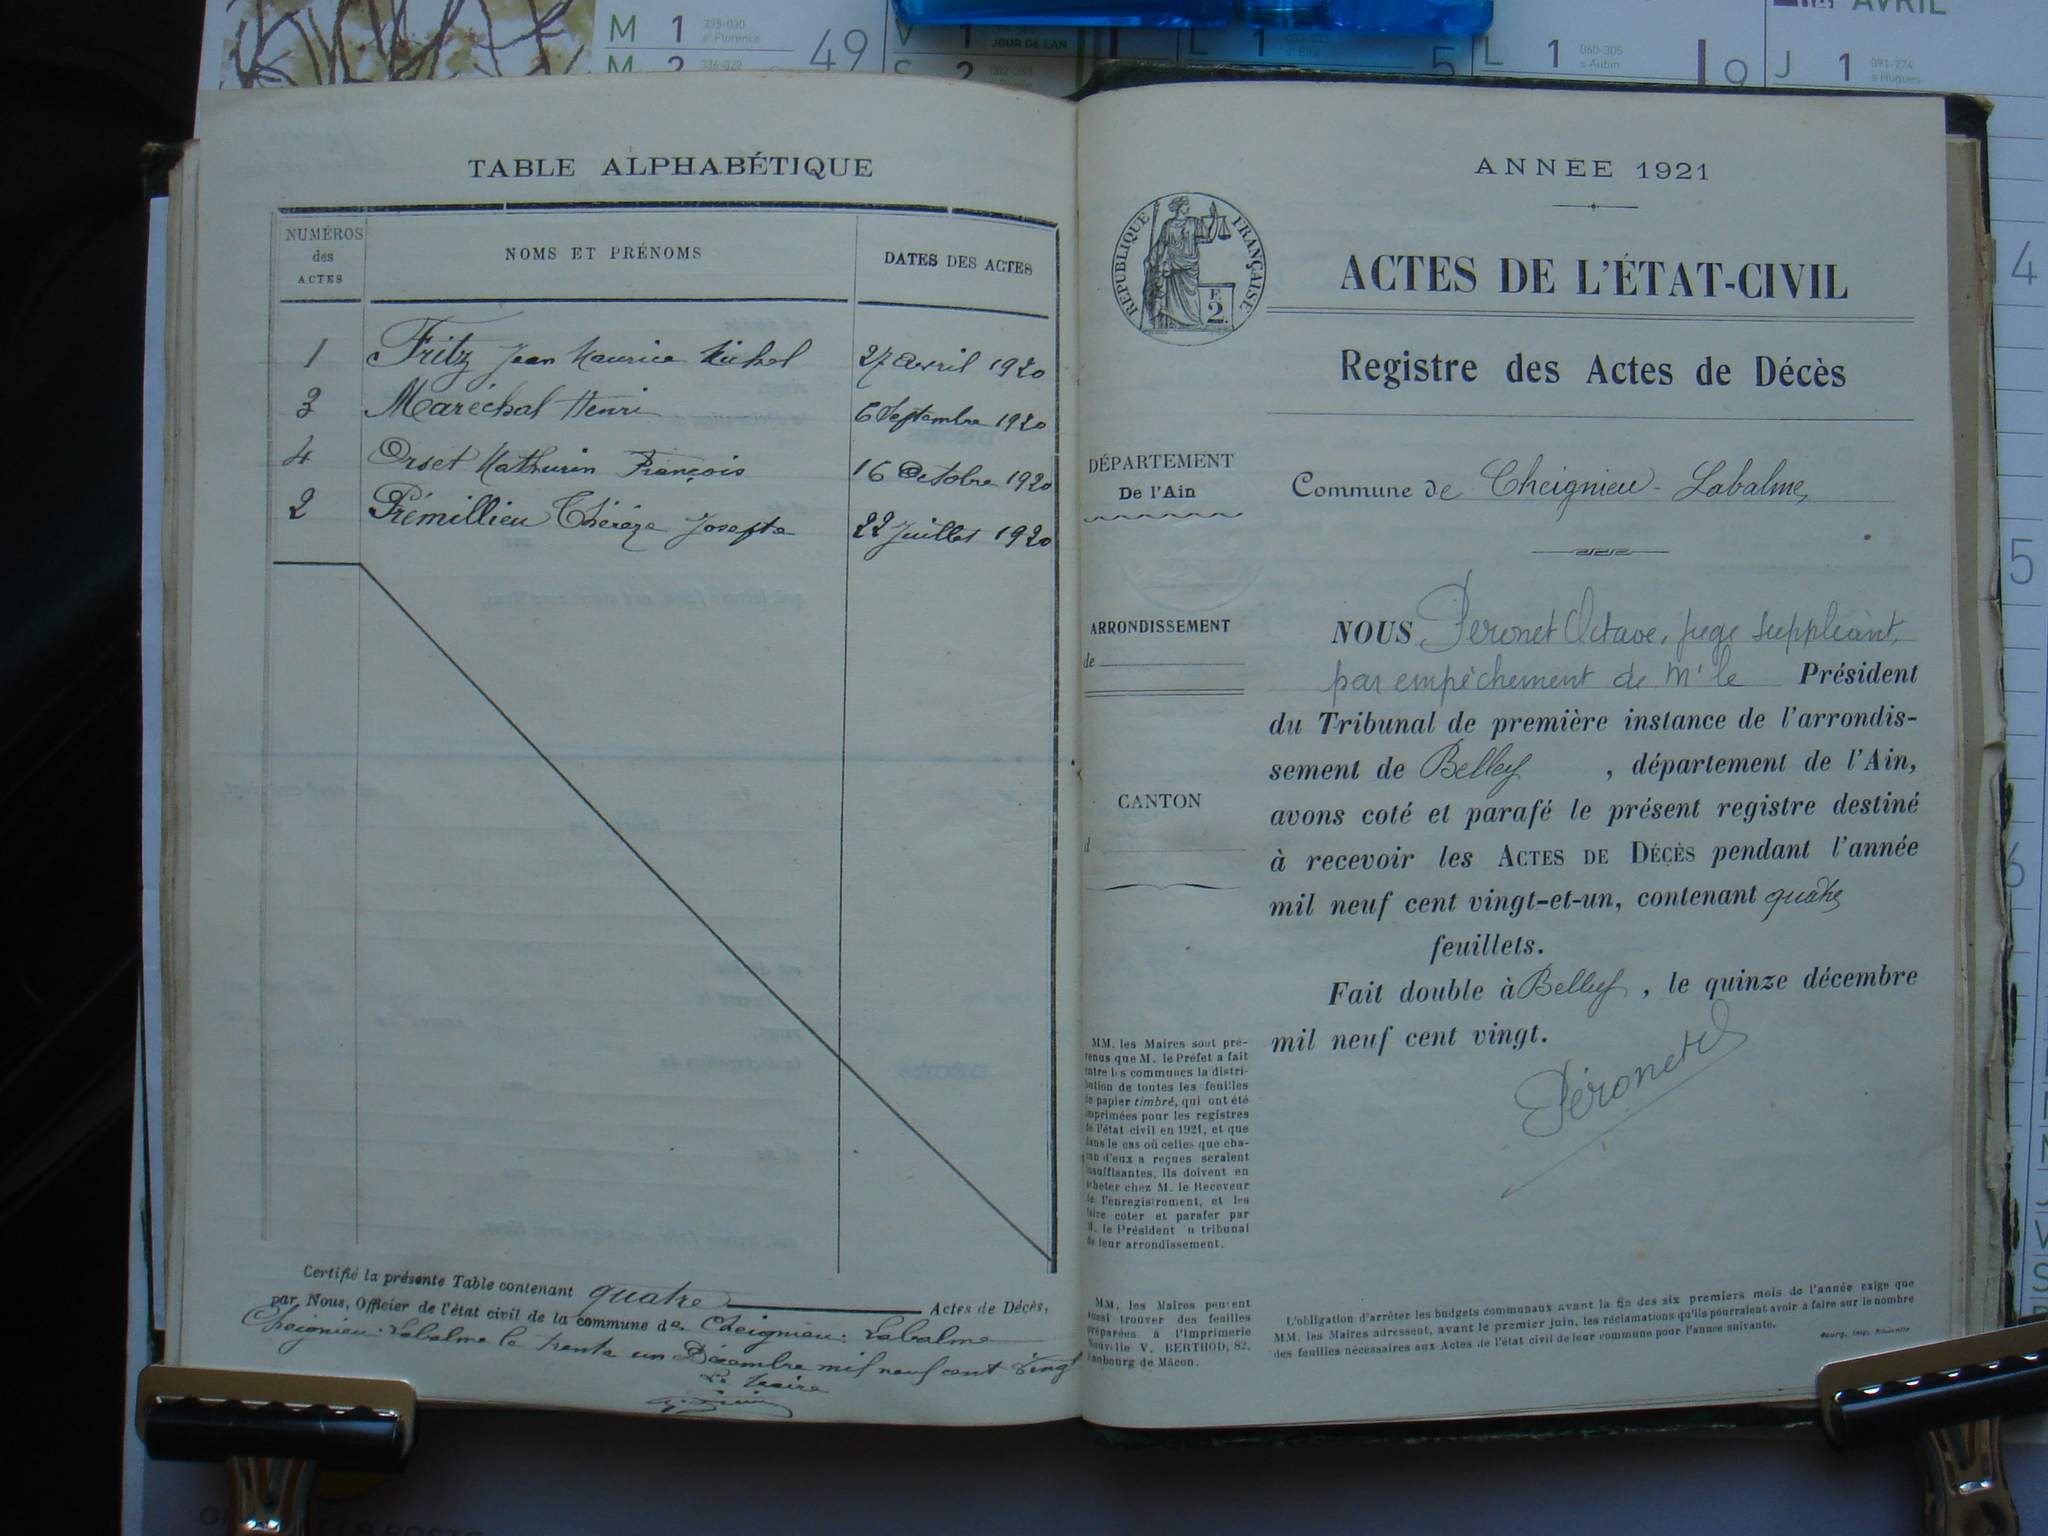 M 1 335-030 sᵉ Florence
49
M 2 336-029
V 1 JOUR DE L'AN
S 2
L 1
5
L 1 060-305 s Aubin
9
AVRIL
J 1 091-274 s Hugues
4
5
6
TABLE ALPHABÉTIQUE
NUMÉROS des ACTES
NOMS ET PRÉNOMS
DATES DES ACTES
1 Fritz Jean Maurice Michel 27 avril 1920
3 Maréchal Henri 6 Septembre 1920
4 Orset Mathurin François 16 Octobre 1920
2 Prémillieu Thérèze Josepte 22 Juillet 1920
Certifié la présente Table contenant quatre Actes de Décès,
par Nous, Officier de l'état civil de la commune de Cheignieu-Labalme
Cheignieu-Labalme le trente un Décembre mil neuf cent vingt
Le Maire
ANNÉE 1921
RÉPUBLIQUE FRANÇAISE
F. 2.
ACTES DE L'ÉTAT-CIVIL
Registre des Actes de Décès
DÉPARTEMENT
De l'Ain
Commune de Cheignieu-Labalme
ARRONDISSEMENT
de
CANTON
d
NOUS Peronet Octave, juge suppléant,
par empêchement de Mr le Président
du Tribunal de première instance de l'arrondis-
sement de Belley, département de l'Ain,
avons coté et parafé le présent registre destiné
à recevoir les ACTES DE DÉCÈS pendant l'année
mil neuf cent vingt-et-un, contenant quatre
feuillets.
Fait double à Belley, le quinze décembre
mil neuf cent vingt.
Péronet
MM. les Maires sont pré-
venus que M. le Préfet a fait
entre les communes la distri-
bution de toutes les feuilles
de papier timbré, qui ont été
imprimées pour les registres
de l'état civil en 1921, et que
dans le cas où celles que cha-
cun d'eux a reçues seraient
insuffisantes, ils doivent en
acheter chez M. le Receveur
de l'enregistrement, et les
faire coter et parafer par
M. le Président u tribunal
de leur arrondissement.
MM. les Maires peuvent
aussi trouver des feuilles
préparées à l'Imprimerie
Nouvelle V. BERTHOD, 82,
Faubourg de Mâcon.
L'obligation d'arrêter les budgets communaux avant la fin des six premiers mois de l'année exige que
MM. les Maires adressent, avant le premier juin, les réclamations qu'ils pourraient avoir à faire sur le nombre
des feuilles nécessaires aux Actes de l'état civil de leur commune pour l'année suivante.
Bourg, Imp. Nouvelle